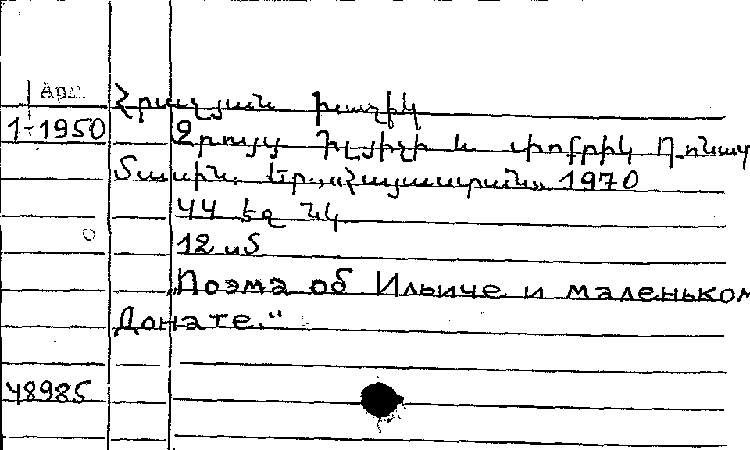 Арм.
Հրաչյան Խաչիկ
1-1950 Զրույց Իլյիչի և փոքրիկ Դոնատ
Մասին. Եր., «Հայաստան», 1970
44 էջ նկ
12 սմ
Поэма об Ильиче и маленьком
Донате."
48985